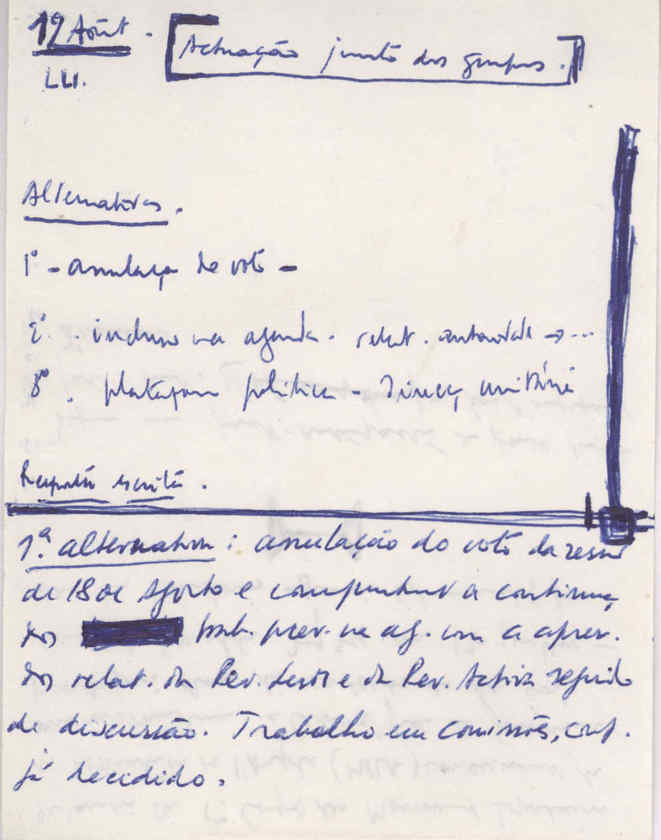 19 Août.
Actuação junto dos grupos.
LLI.
Alternativas.
1º - anulaça de voto -
2º. incluso na agenda. relat. autoridade → ...
3º. plataform política - Direcç unitári
Resposta escrita.
1ª alternativa: anulação do voto da
de 18 de Agosto e a
dos trab. prev. na ag. com a apres.
dos relat. da Rev. Leste e da Rev. Activa seguido
de discussão. Trabalho em Comissões, conf.
já decidido.